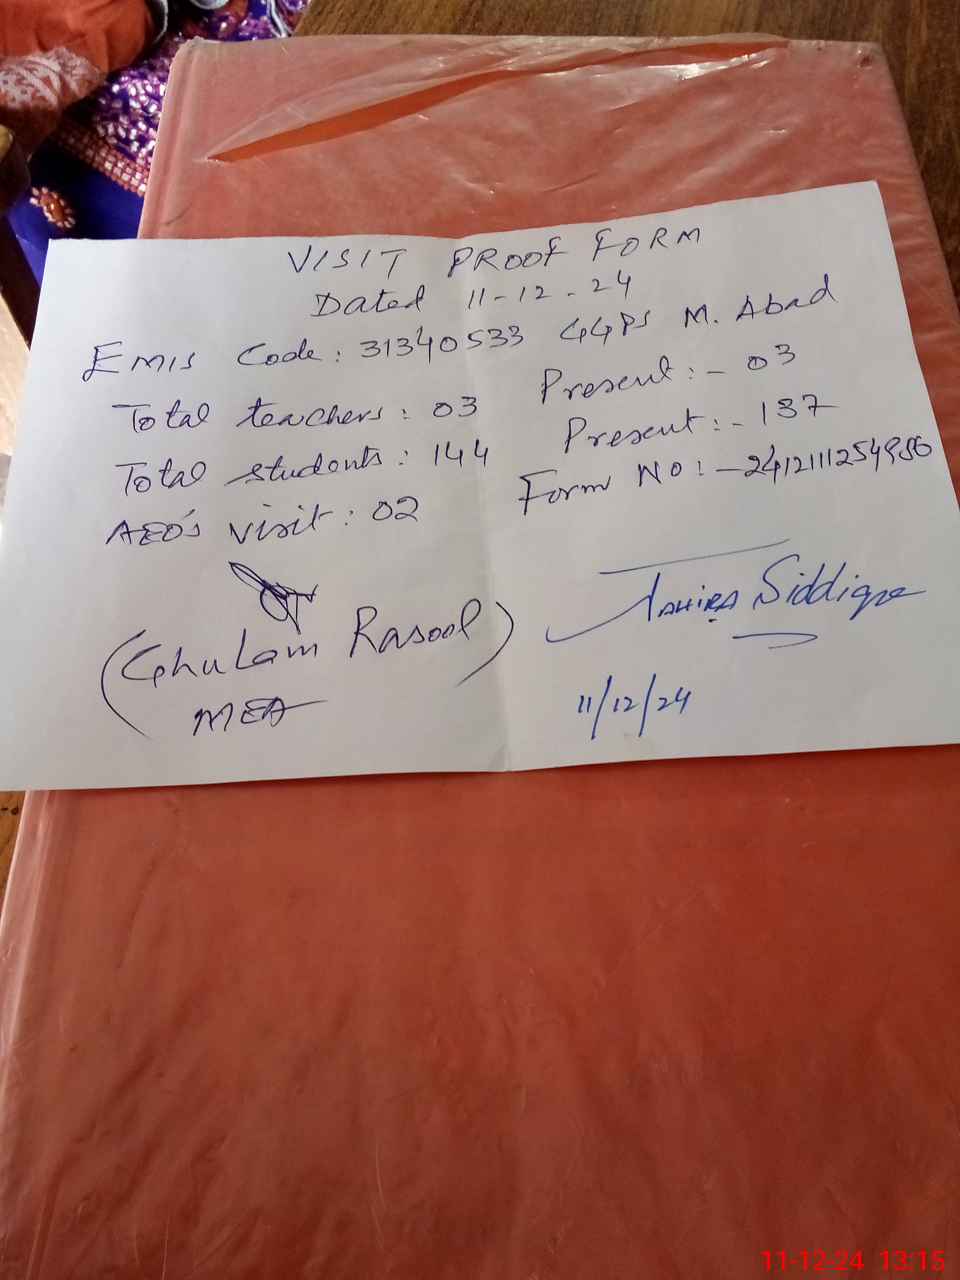 VISIT PROOF FORM
Dated 11-12-24
EMIS Code: 31340533 GGPS M. Abad
Total teachers: 03 Present:- 03
Total students: 144 Present:- 137
AEO's visit: 02 Form No:-
(Ghulam Rasool)
MEA
Tahira Siddique
11/12/24
11-12-24 13:15